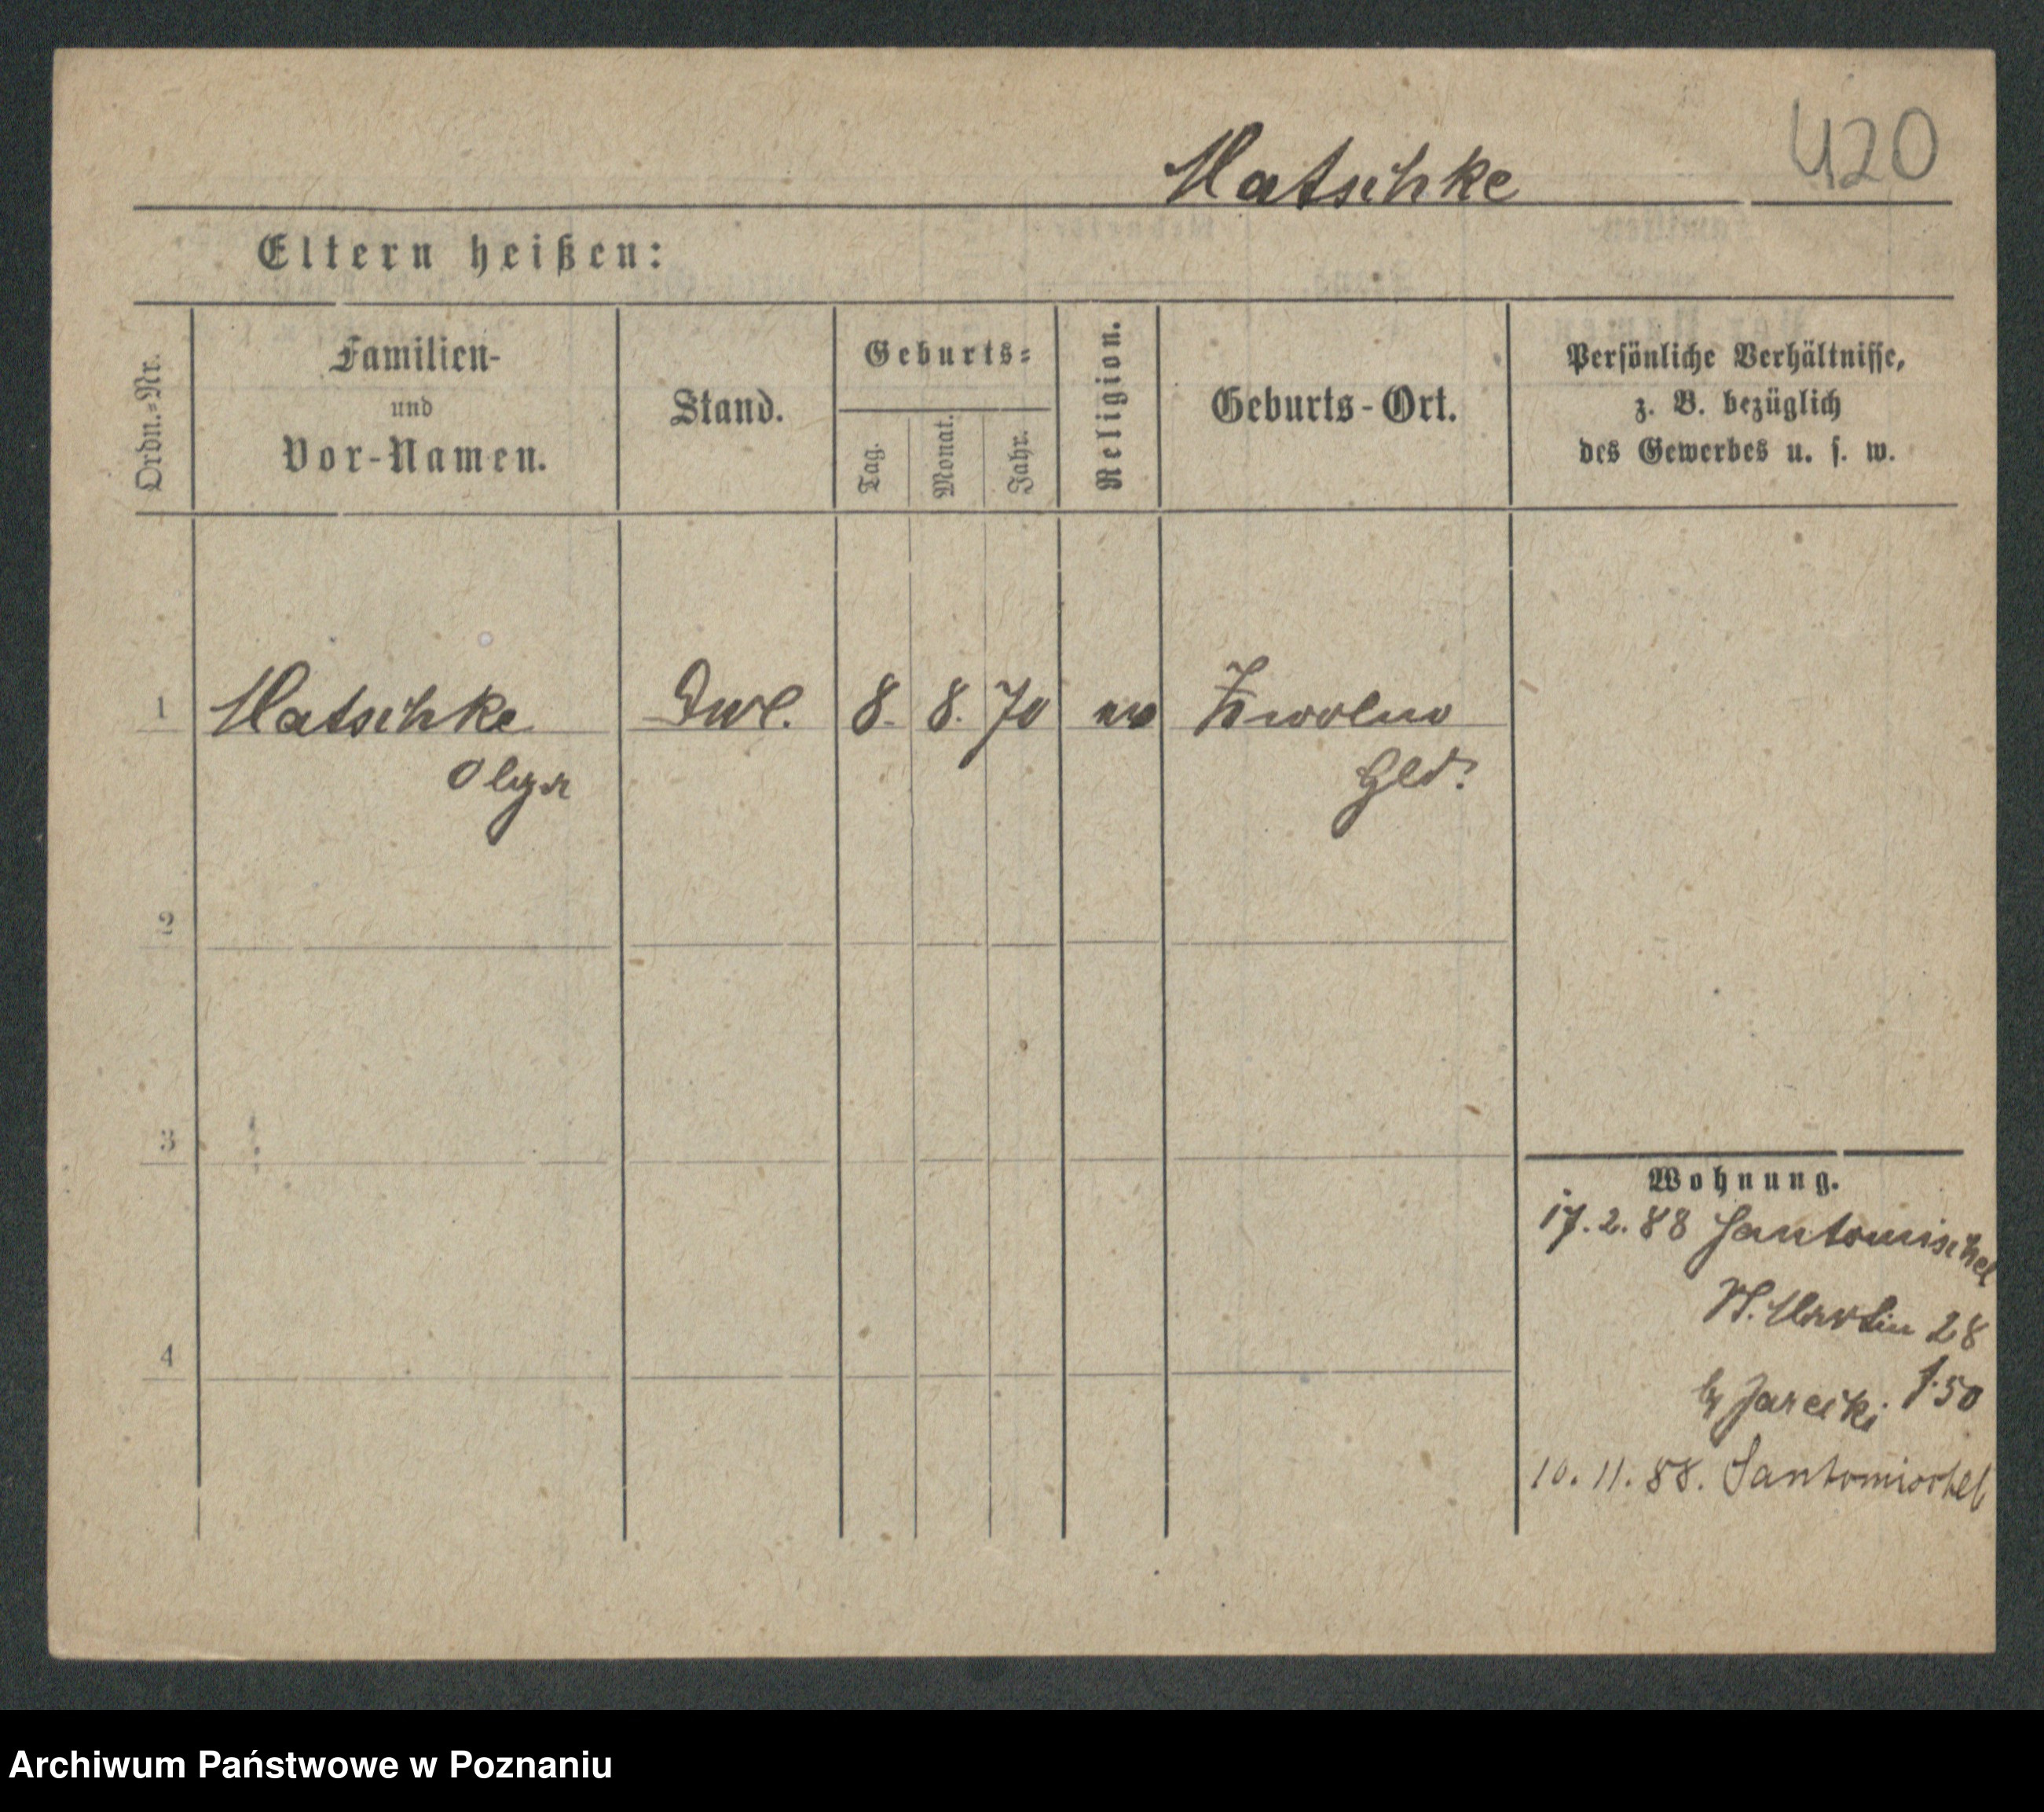 420
Matschke
Eltern heißen:
Ordn.-Nr.
Familien-
und
Vor-Namen.
Stand.
Geburts-
Tag.
Monat.
Jahr.
Religion.
Geburts-Ort.
Persönliche Verhältnisse,
z. B. bezüglich
des Gewerbes u. s. w.
1 Matschke 8. 8. 70
Olga
2
3
4
Wohnung.
17. 2. 88 Santomischel
St. Martin 28
Jarecki 1.50
10. 11. 88. Santomischel
Archiwum Państwowe w Poznaniu